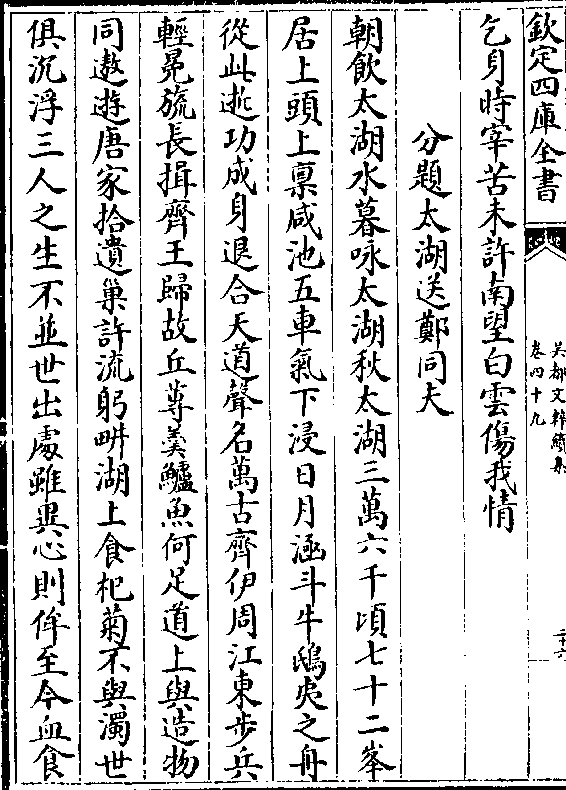 欽定四庫全書
吴都文粹續集
卷四十九
二十六
乞身時宰苦未許南望白雲傷我情
分題太湖送鄭同夫
朝飲太湖水暮咏太湖秋太湖三萬六千頃七十二峯
居上頭上禀咸池五車氣下浸日月涵斗牛鴟夷之舟
從此逝功成身退合天道聲名萬古齊伊周江東步兵
輕冕旒長揖齊王歸故丘蓴羮鱸魚何足道上與造物
同遨遊唐家拾遺巢許流躬畊湖上食杞菊不與濁世
俱沉浮三人之生不並世出處雖異心則侔至今血食